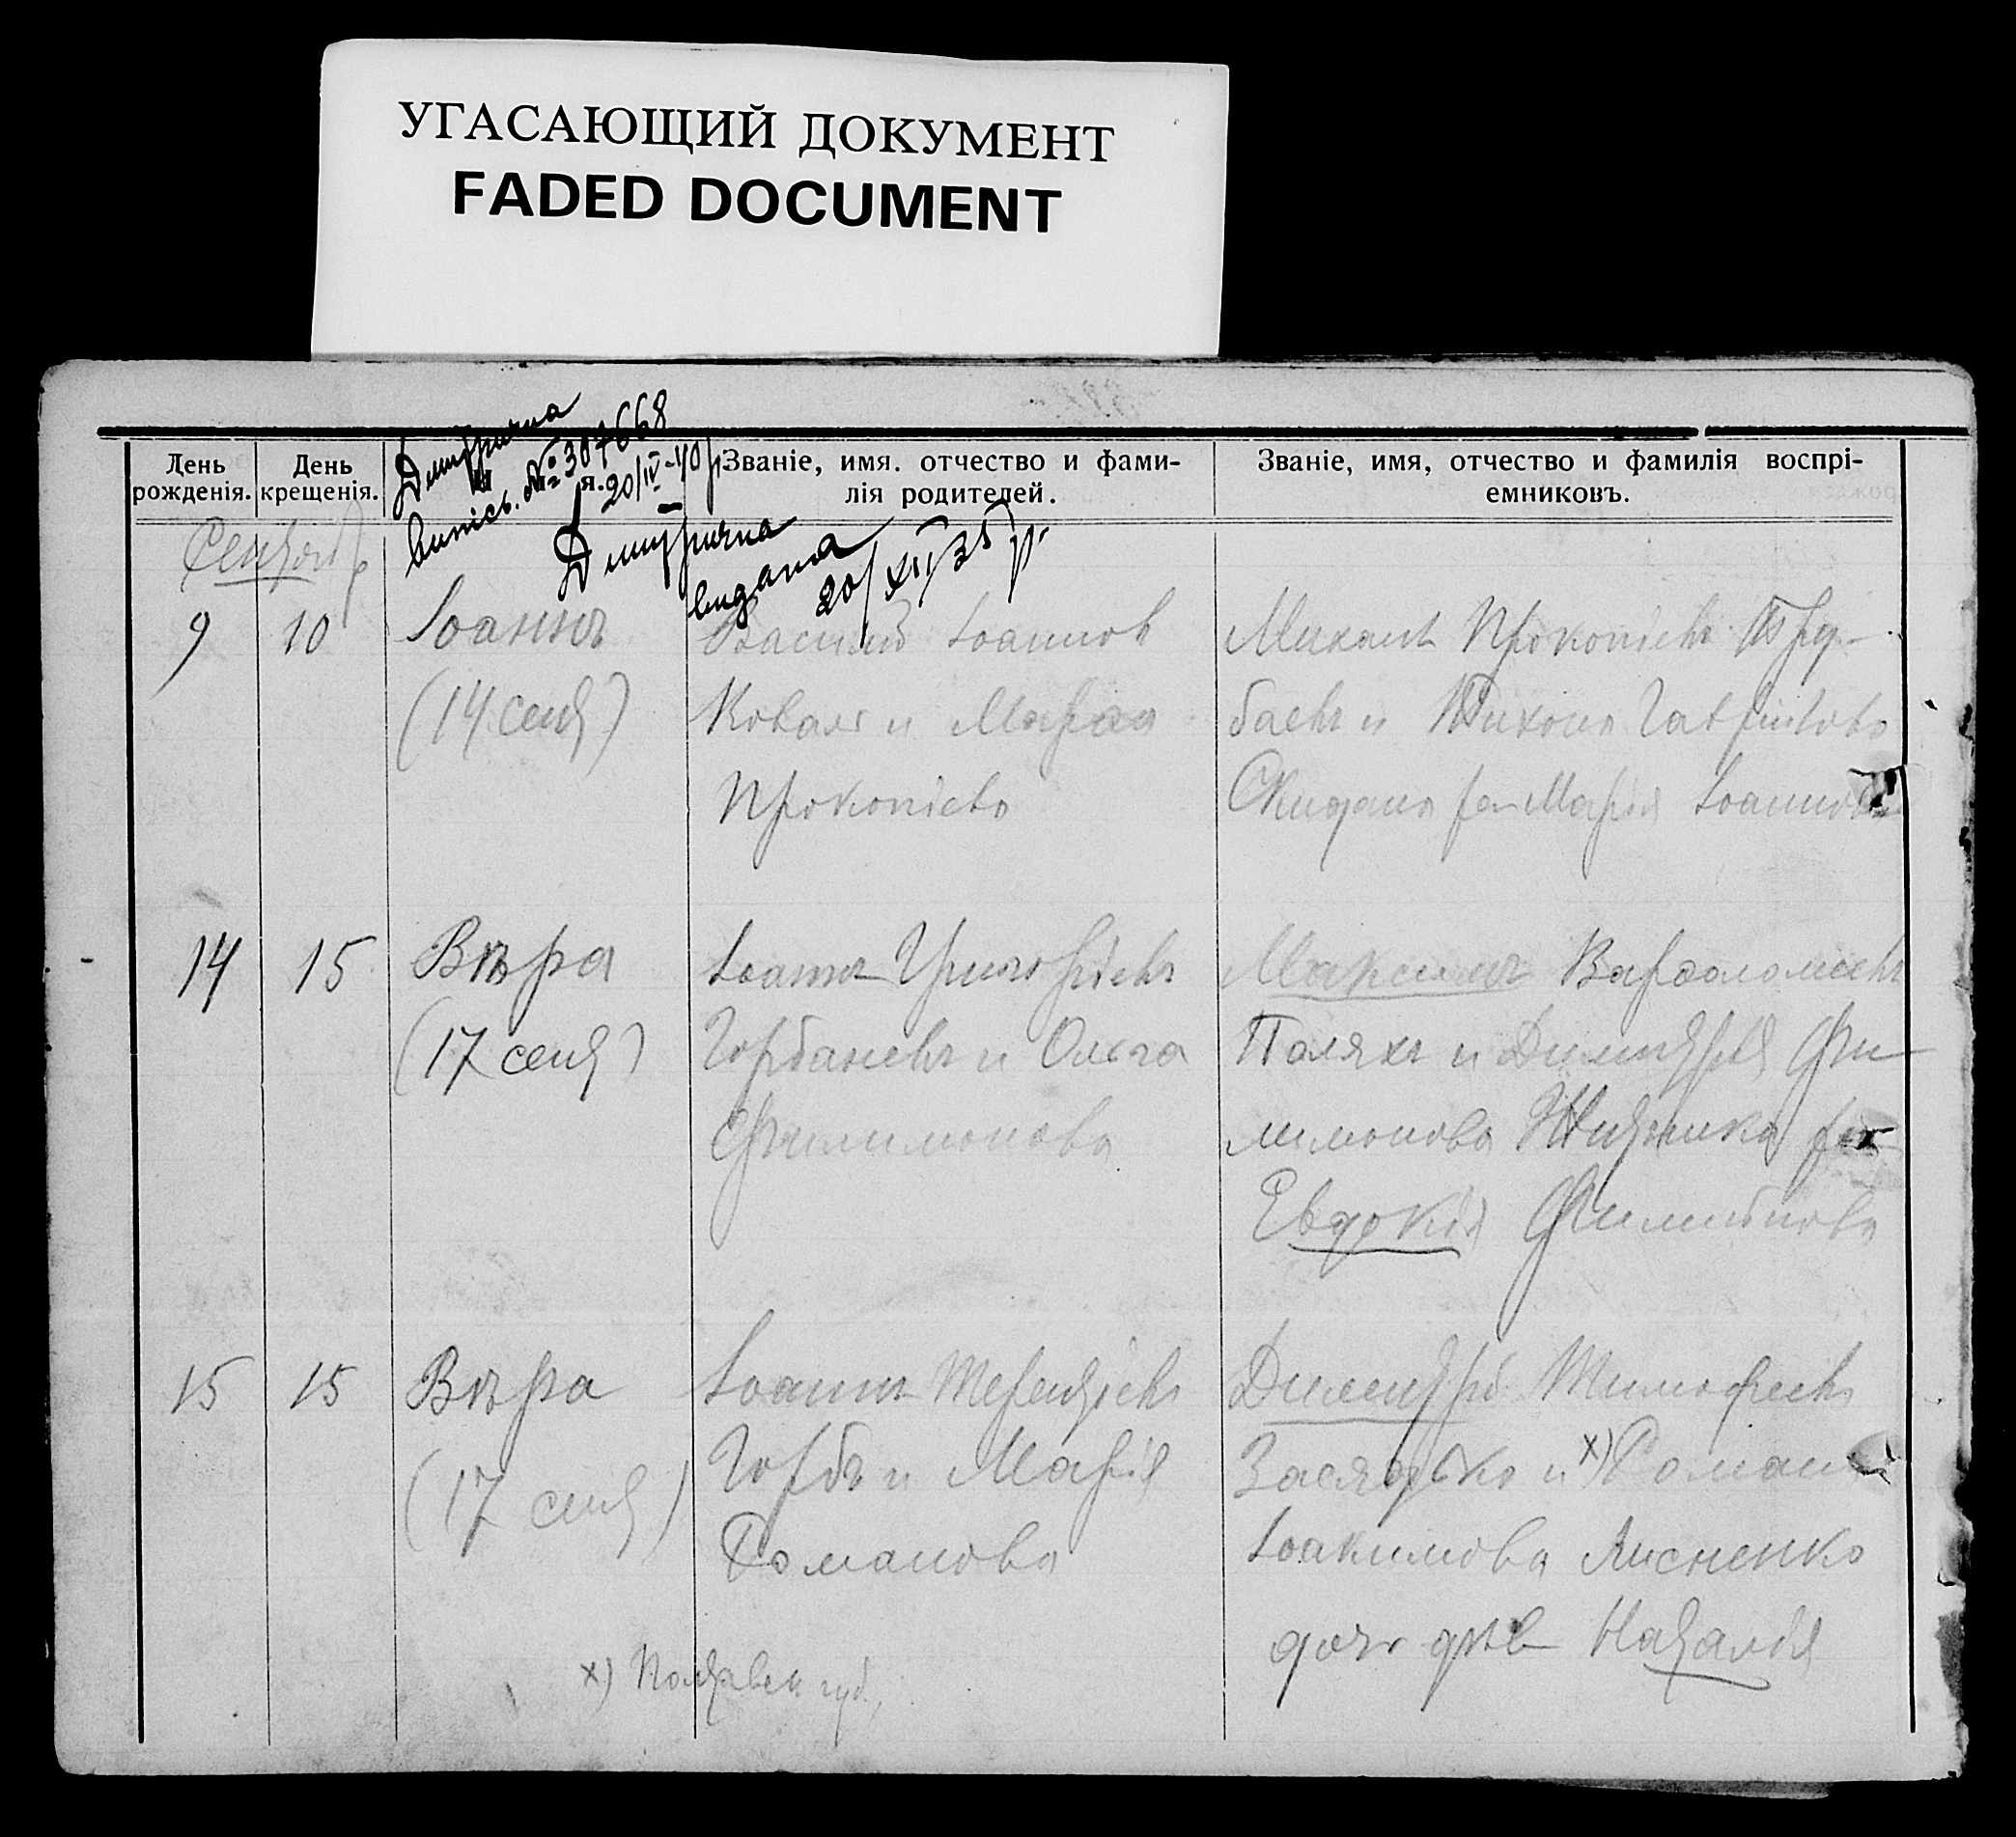 УГАСАЮЩИЙ ДОКУМЕНТ
FADED DOCUMENT
День рожденія.
День крещенія.
Званіе, имя. отчество и фами-
лія родителей.
Званіе, имя, отчество и фамилія воспрі-
емниковъ.
№ 307668
20/IV-40
видана
20/XII 35 р.
9
10
Іоаннъ
(14 сент)
Василій Іоаннов
Коваль и Марія
Прокопіева
Михаилъ Прокопіевъ
баевъ и Тихонъ Гавриловъ
Скидана Марія Іоаннова
14
15
Вѣра
(17 сент)
Іоаннъ Григорьевъ
Горбаневъ и Ольга
Филимонова
Максимъ Варфоломеевъ
Полях и Димитрій Фи-
лимонова
Евдокія Филимонова
15
15
Вѣра
(17 сент)
Іоаннъ Терентіевъ
Горбъ и Марія
Романова
Димитрій Тимофеевъ
Засядько и х) Романа
Іоакимова Лисненко
дочь дѣв Наталія
х) Полтавск. губ.